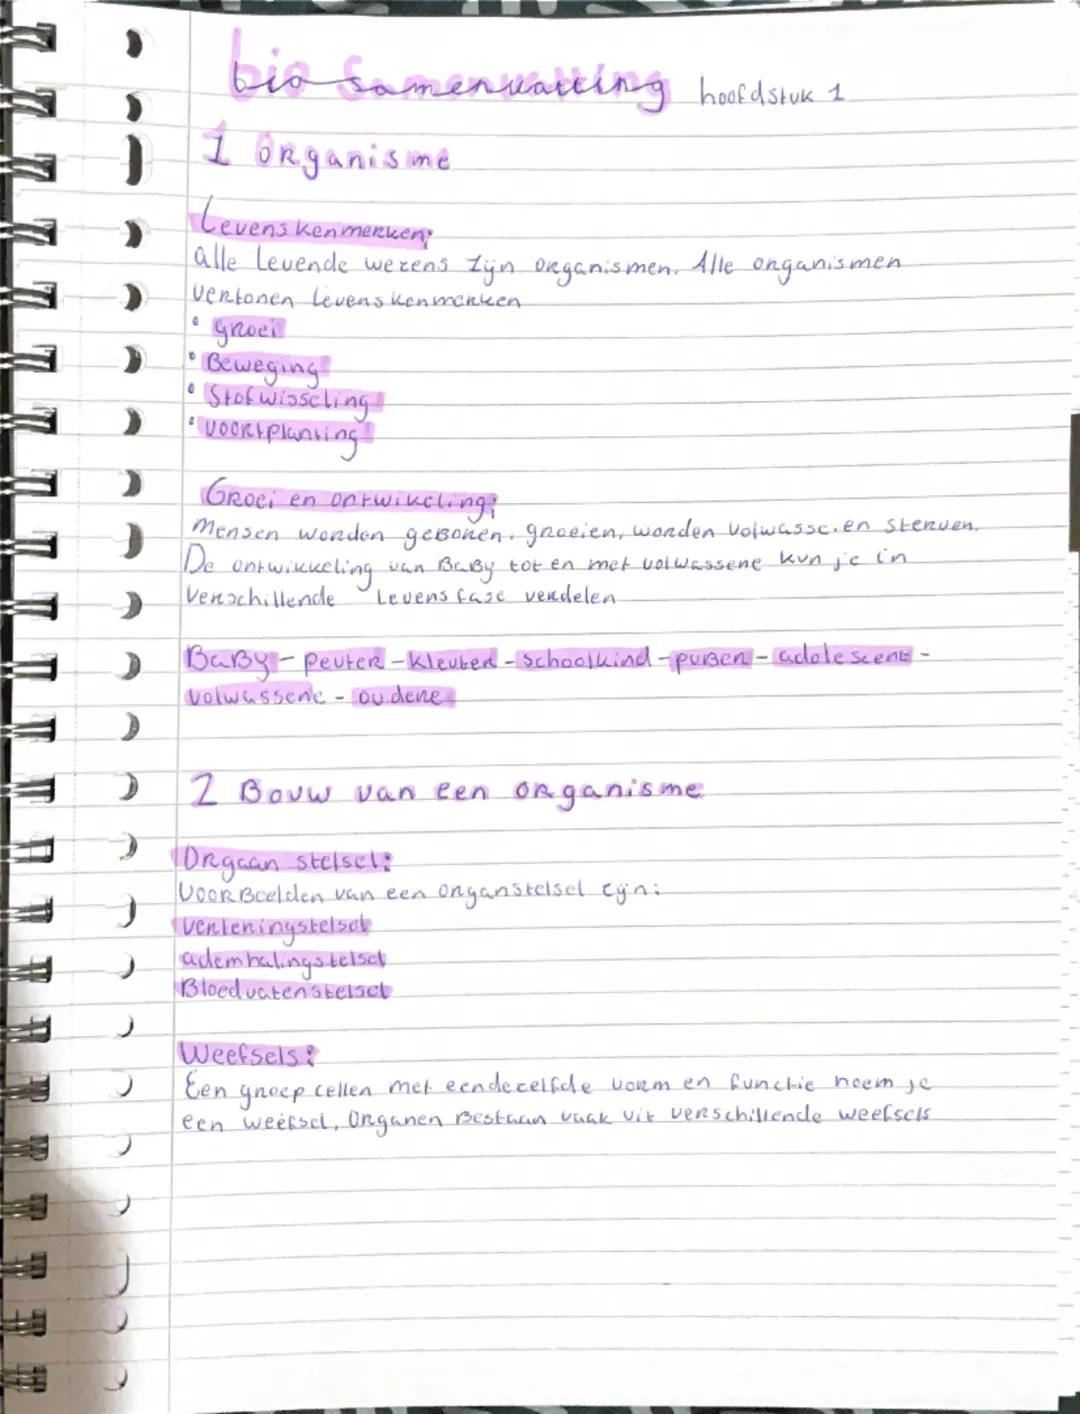 bio samenvatting hoofdstuk 1
1 Organisme
Levenskenmerken:
alle levende wezens zijn organismen. Alle organismen
vertonen levenskenmerken
• groei
• Beweging
• Stofwisseling
• voortplanting
Groei en ontwikeling:
mensen worden geboren, groeien, worden volwasse.en sterven.
De ontwikkeling van BaBy tot en met volwassene kun je in
verschillende levens fase verdelen
BaBy - peuter - kleuter - schoolkind - puBer - adolescent -
volwassene - oudere
2 Bouw van een organisme
Orgaan stelsel:
VoorBeelden van een organstelsel zijn:
verteringstelsel
ademhalingstelsel
Bloedvatenstelsel
Weefsels:
Een groep cellen met eendezelfde vorm en functie noem je
een weefsel, Organen Bestaan vaak uit verschillende weefsels